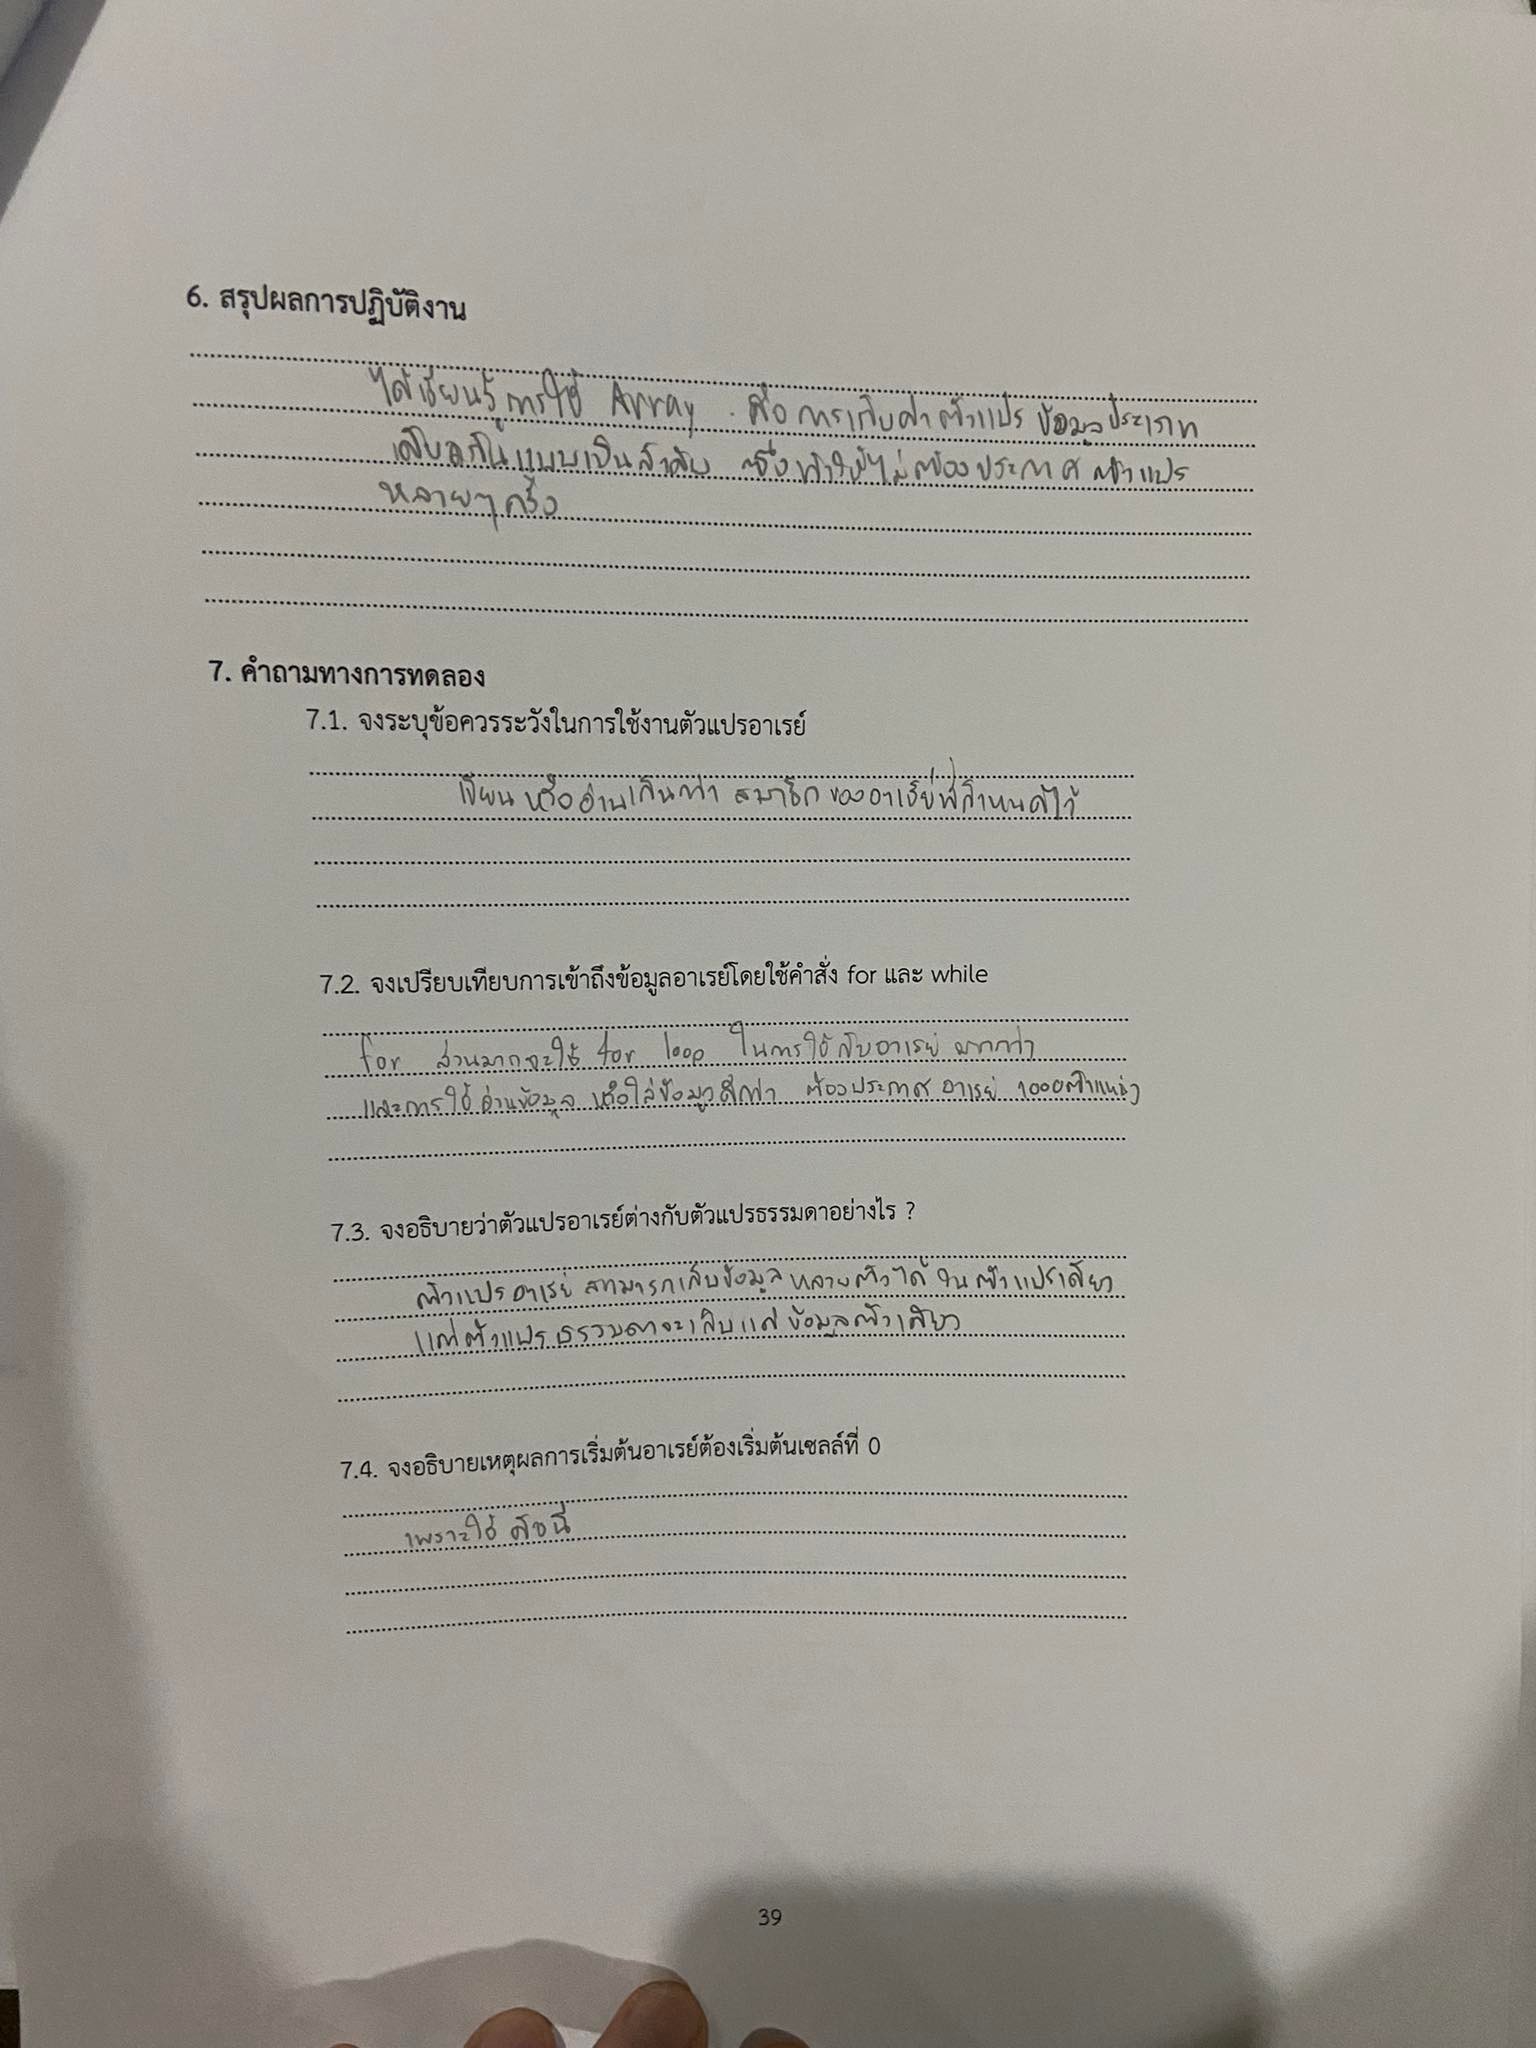 6. สรุปผลการปฏิบัติงาน
ได้เรียนรู้การใช้ Array . คือ การเก็บค่าตัวแปร ข้อมูลประเภท
เดียวกันแบบเป็นลำดับ ซึ่งทำให้ไม่ต้องประกาศ ตัวแปร
หลายๆครั้ง
7. คำถามทางการทดลอง
7.1. จงระบุข้อควรระวังในการใช้งานตัวแปรอาเรย์
เขียน หรืออ่านเกินกว่า สมาชิก ของอาเรย์ที่กำหนดไว้
7.2. จงเปรียบเทียบการเข้าถึงข้อมูลอาเรย์โดยใช้คำสั่ง for และ while
for ส่วนมากจะใช้ for loop ในการใช้กับอาเรย์ มากกว่า
และการใช้อ่านข้อมูล หรือใส่ข้อมูลดีกว่า ต้องประกาศ อาเรย์ 1000ตำแหน่ง
7.3. จงอธิบายว่าตัวแปรอาเรย์ต่างกับตัวแปรธรรมดาอย่างไร ?
ตัวแปร อาเรย์ สามารถเก็บข้อมูล หลายตัวได้ ในตัวแปรเดียว
แต่ตัวแปร ธรรมดาจะเก็บแค่ ข้อมูลตัวเดียว
7.4. จงอธิบายเหตุผลการเริ่มต้นอาเรย์ต้องเริ่มต้นเซลล์ที่ 0
เพราะใช้ ดัชนี
39